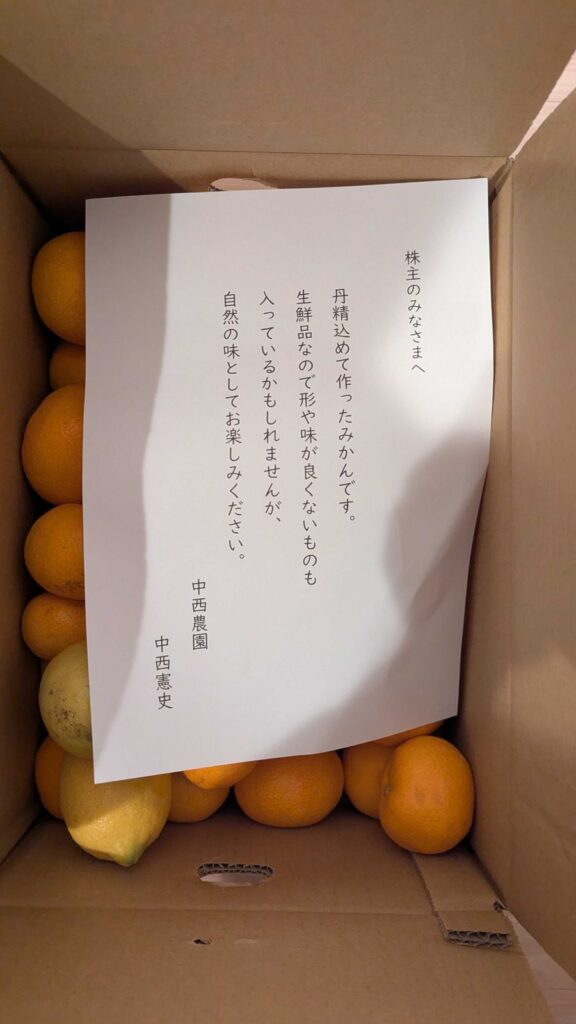 株主のみなさまへ
丹精込めて作ったみかんです。
生鮮品なので形や味が良くないものも
入っているかもしれませんが、
自然の味としてお楽しみください。
中西農園
中西憲史